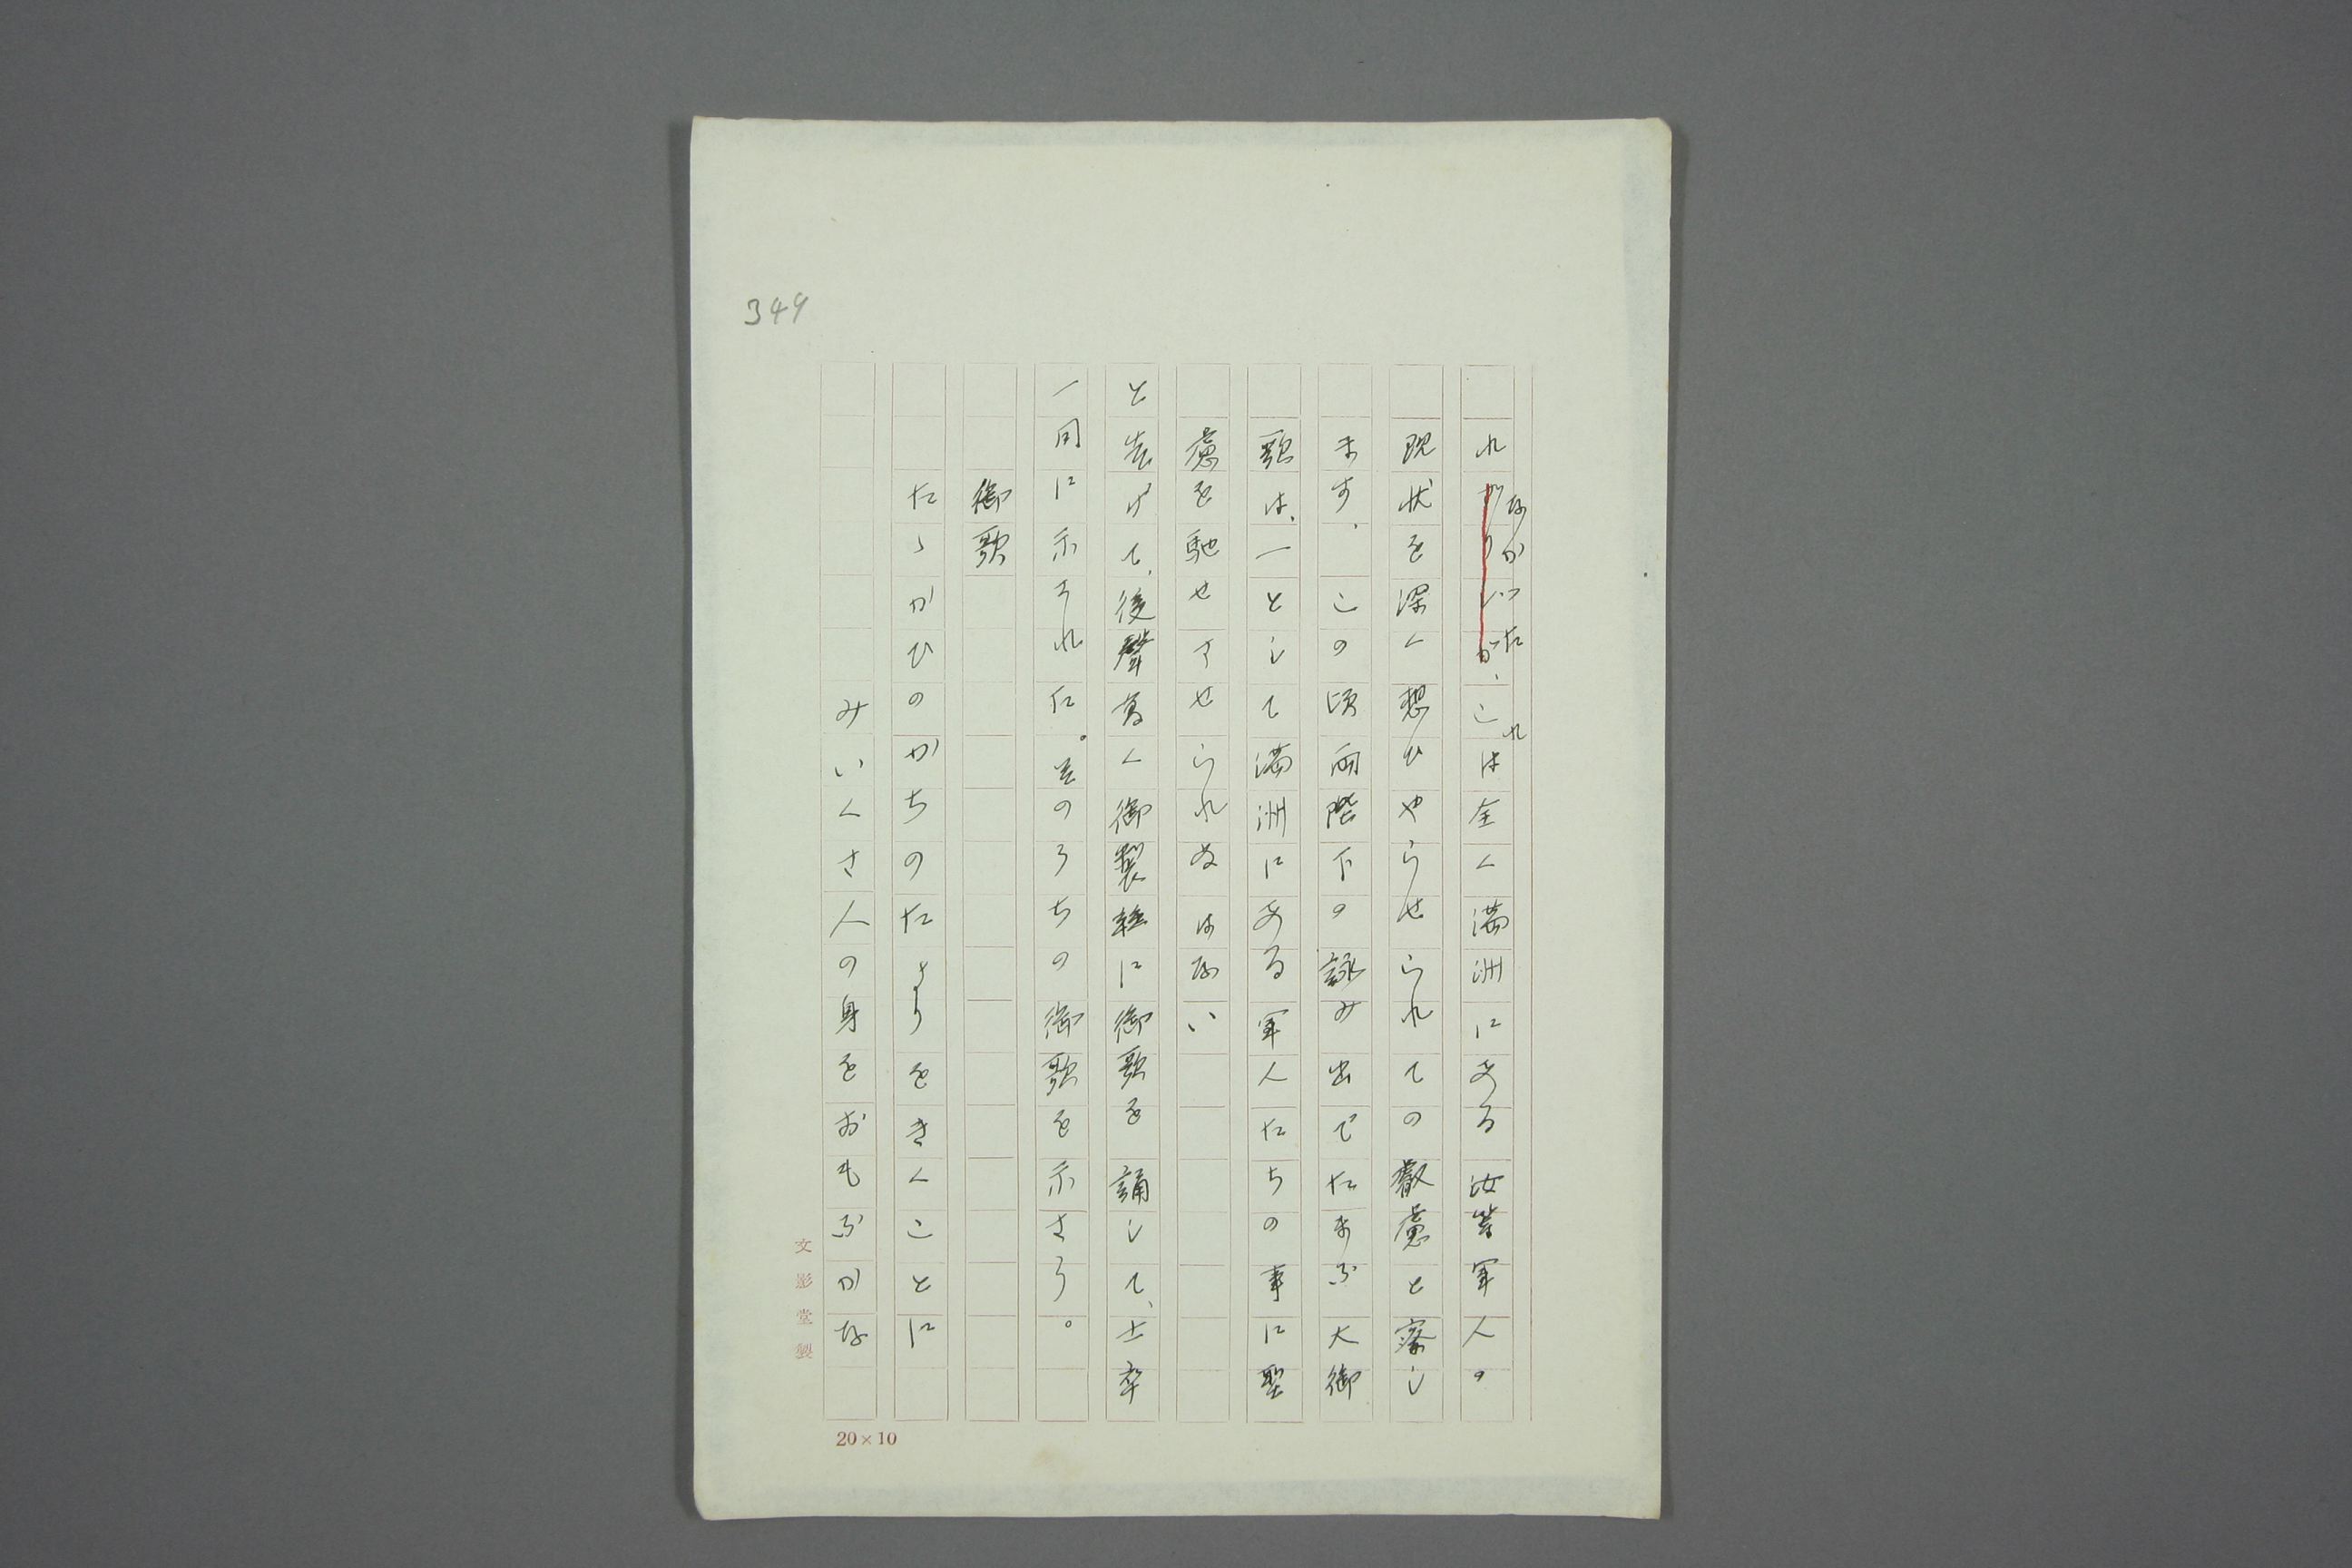 349
れなかつたが、これは全く満洲にある汝等軍人の
現状を深く想ひやらせられての叡慮と察し
ます、この頃両陛下の詠み出でたまふ大御
歌は、一として満洲にある軍人たちの事に聖
慮を馳せさせられぬはない
と告げて、後聲高く御製並に御歌を誦して、士卒
一同に示された。そのうちの御歌を示さう。
御歌
たゝかひのかちのたよりをきくことに
みいくさ人の身をおもふかな
文影堂製
20×10